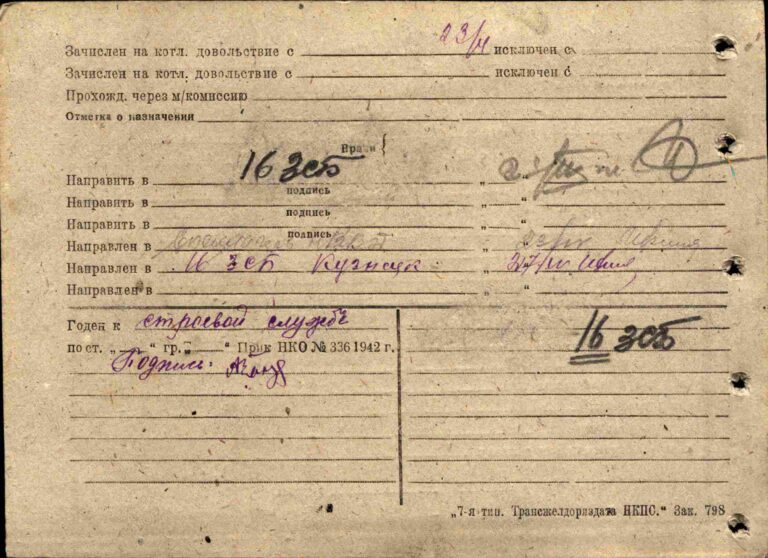 23/VI
Зачислен на котл. довольствие с исключен с
Зачислен на котл. довольствие с исключен с
Прохожд. через м/комиссию
Отметка о назначении
Врачи {
Направить в 16 зсб „ “
подпись
Направить в „ “
подпись
Направить в „ “
подпись
Направлен в „ “
Направлен в 16 зсб Кузнецк „ “
Направлен в „ “
Годен к строевой службе
по ст. „ “ гр. „ “ Прик НКО № 336 1942 г.
Подпись:
16 зсб
„7-я тип. Трансжелдориздата НКПС.“ Зак. 798